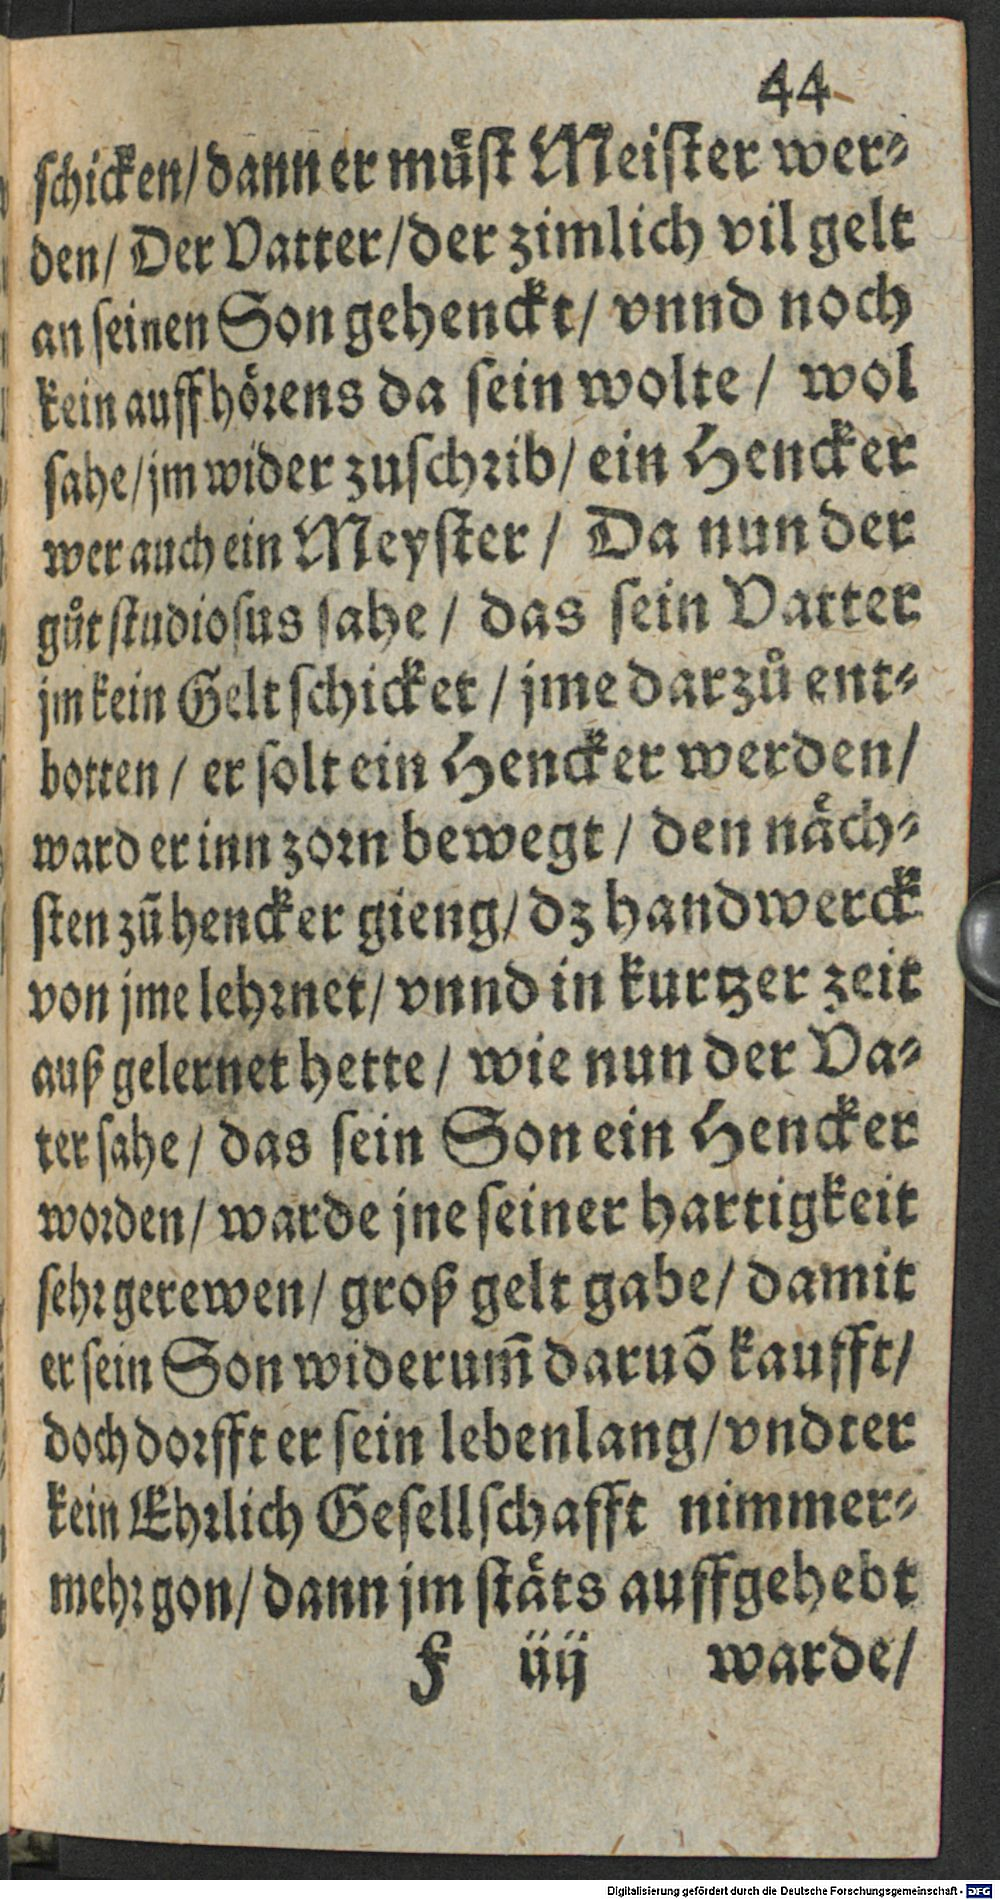 44
schicken/ dann er müst Meister wer⸗
den/ Der Vatter/ der zimlich vil gelt
an seinen Son gehenckt/ vnnd noch
kein auffhörens da sein wolte/ wol
sahe/ jm wider zuschrib/ ein Hencker
wer auch ein Meyster/ Da nun der
gůt studiosus sahe/ das sein Vatter
jm kein Gelt schicket/ jme darzů ent⸗
botten/ er solt ein Hencker werden/
ward er inn zorn bewegt/ den nåch⸗
sten zũ hencker gieng/ dz handwerck
von jme lehrnet/ vnnd in kurtzer zeit
auß gelernet hette/ wie nun der Va⸗
ter sahe/ das sein Son ein Hencker
worden/ warde jne seiner hartigkeit
sehr gerewen/ groß gelt gabe/ damit
er sein Son widerum̃ daruõ kaufft/
doch dorfft er sein lebenlang/ vndter
kein Ehrlich Gesellschafft nimmer⸗
mehr gon/ dann jm ståts auffgehebt
F iiij warde/
Digitalisierung gefördert durch die Deutsche Forschungsgemeinschaft - DFG